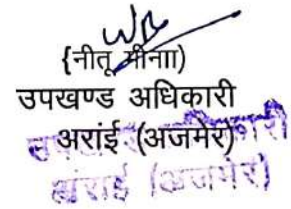 {नीतू मीनाा)
उपखण्ड अधिकारी
अरांई (अजमेर)
उपखण्ड अधिकारी
अंराई (अजमेर)